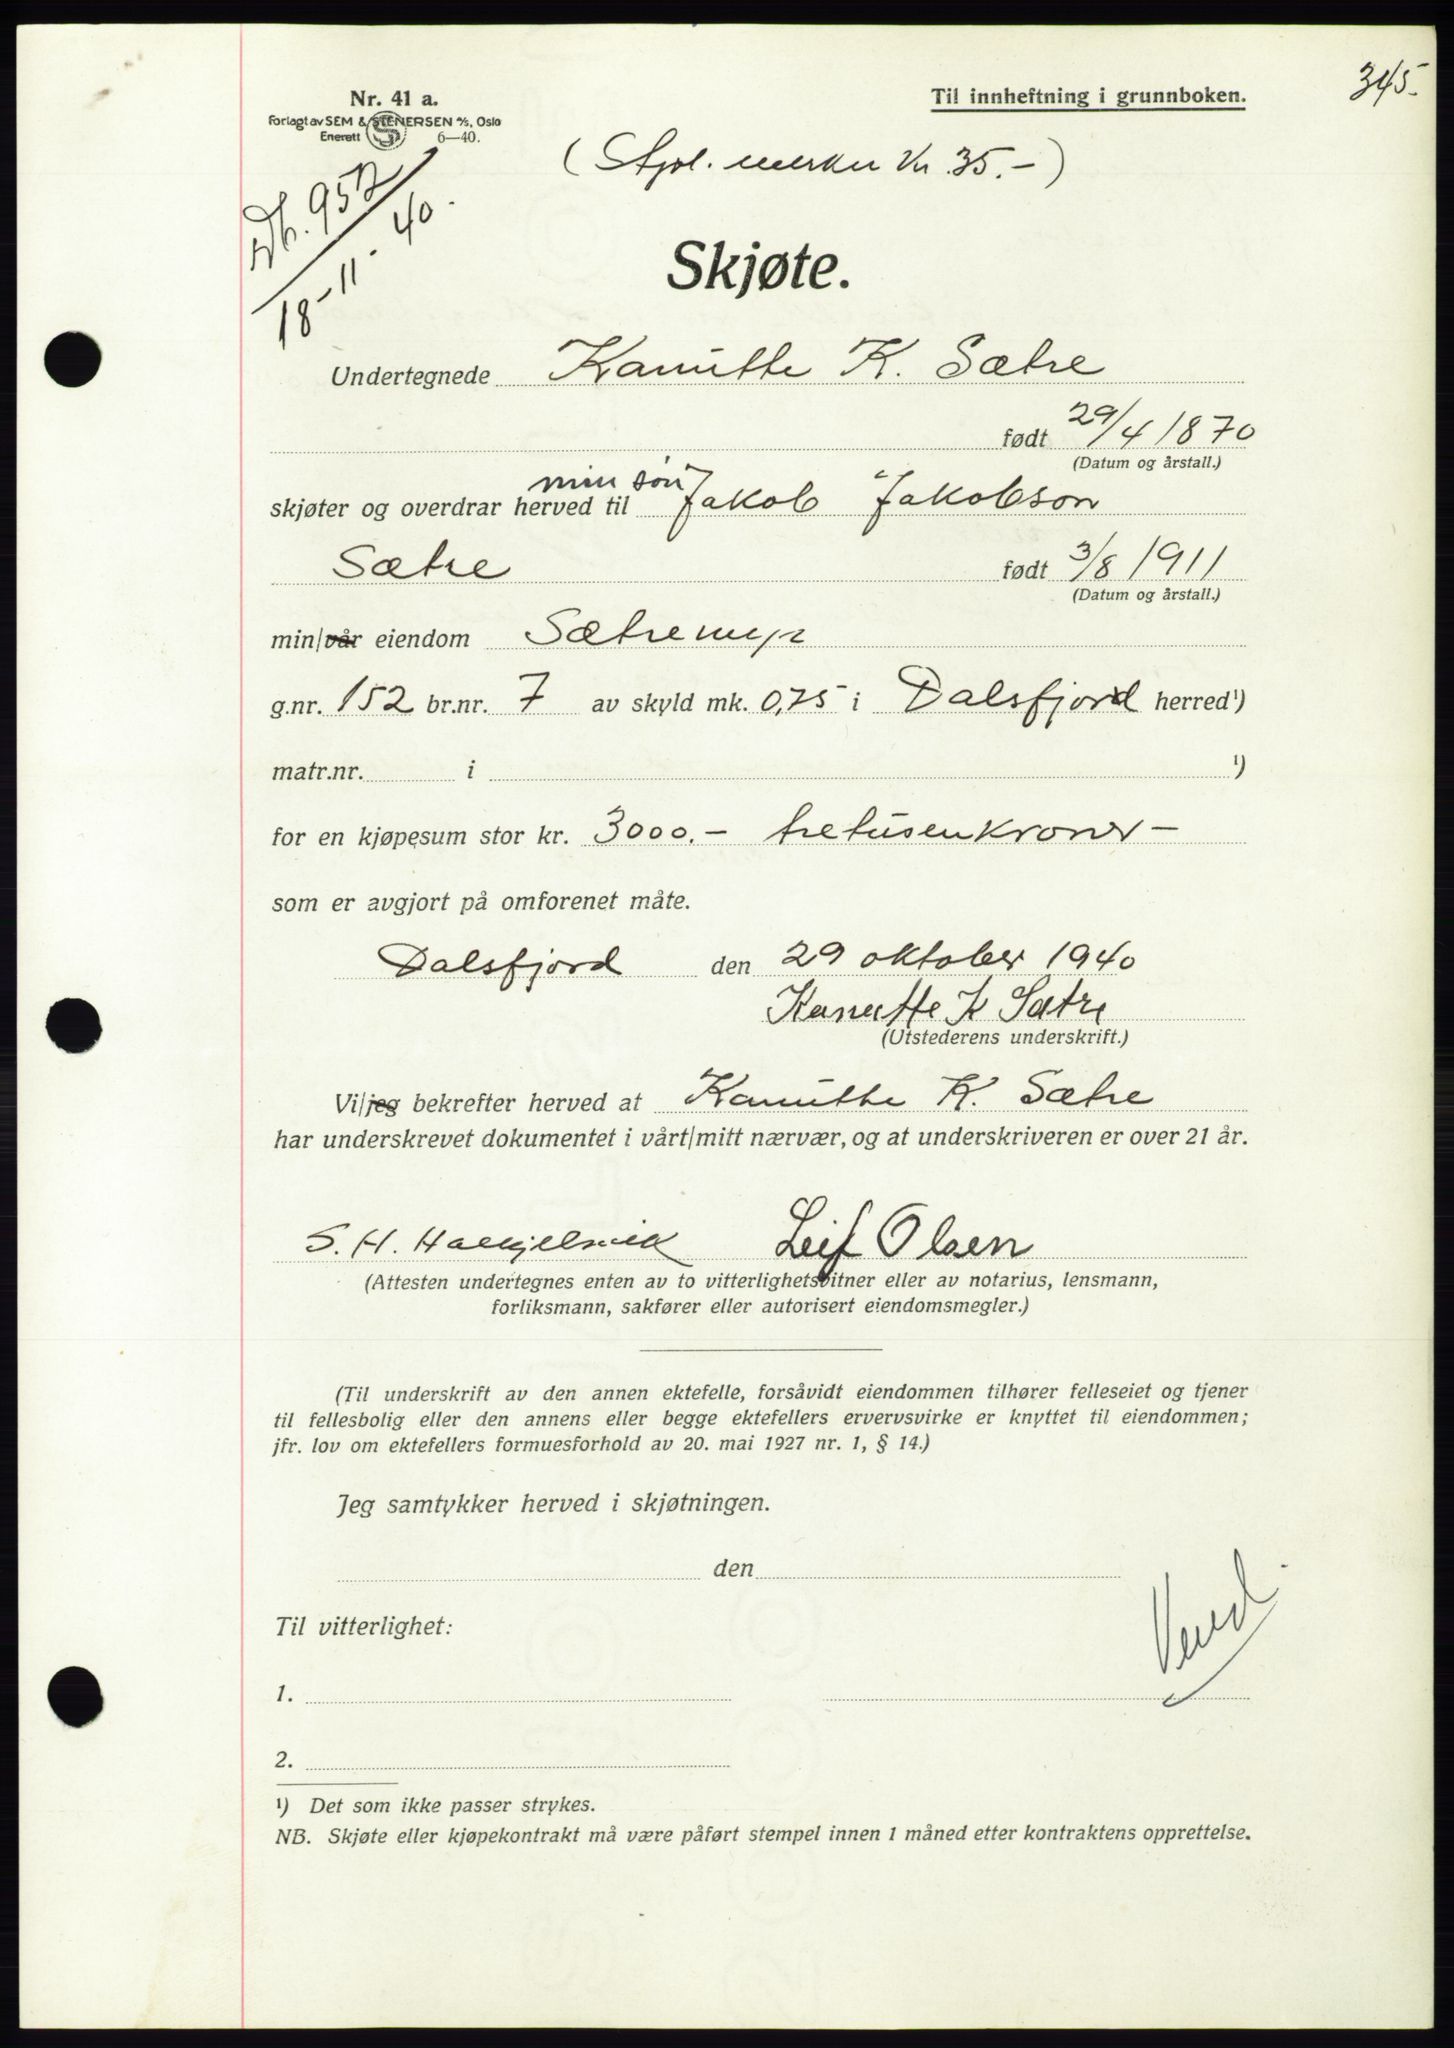 345.
Nr. 41 a.
Til innheftning i grunnboken.
Forlagt av SEM & STENERSEN A/S, Oslo
Enerett 6—40.
(Stpl. merker kr. 35.-)
Db. 952
18-11-40.
Skjøte.
Undertegnede Kanutte K. Sætre
født 29/4 1870
(Datum og årstall.)
min søn
skjøter og overdrar herved til Jakob Jakobson
Sætre født 3/8 1911
(Datum og årstall.)
min/vår eiendom Sætremyr
g.nr. 152 br.nr. 7 av skyld mk. 0,75 i Dalsfjord herred¹)
matr.nr. i ¹)
for en kjøpesum stor kr. 3000.- tretusenkroner-
som er avgjort på omforenet måte.
Dalsfjord den 29 oktober 1940
Kanutte K Sætre
(Utstederens underskrift.)
Vi/jeg bekrefter herved at Kanutte K. Sætre
har underskrevet dokumentet i vårt/mitt nærvær, og at underskriveren er over 21 år.
S. H. Leif Olsen
(Attesten undertegnes enten av to vitterlighetsvitner eller av notarius, lensmann,
forliksmann, sakfører eller autorisert eiendomsmegler.)
(Til underskrift av den annen ektefelle, forsåvidt eiendommen tilhører felleseiet og tjener
til fellesbolig eller den annens eller begge ektefellers ervervsvirke er knyttet til eiendommen;
jfr. lov om ektefellers formuesforhold av 20. mai 1927 nr. 1, § 14.)
Jeg samtykker herved i skjøtningen.
den
Vend.
Til vitterlighet:
1.
2.
¹) Det som ikke passer strykes.
NB. Skjøte eller kjøpekontrakt må være påført stempel innen 1 måned etter kontraktens opprettelse.